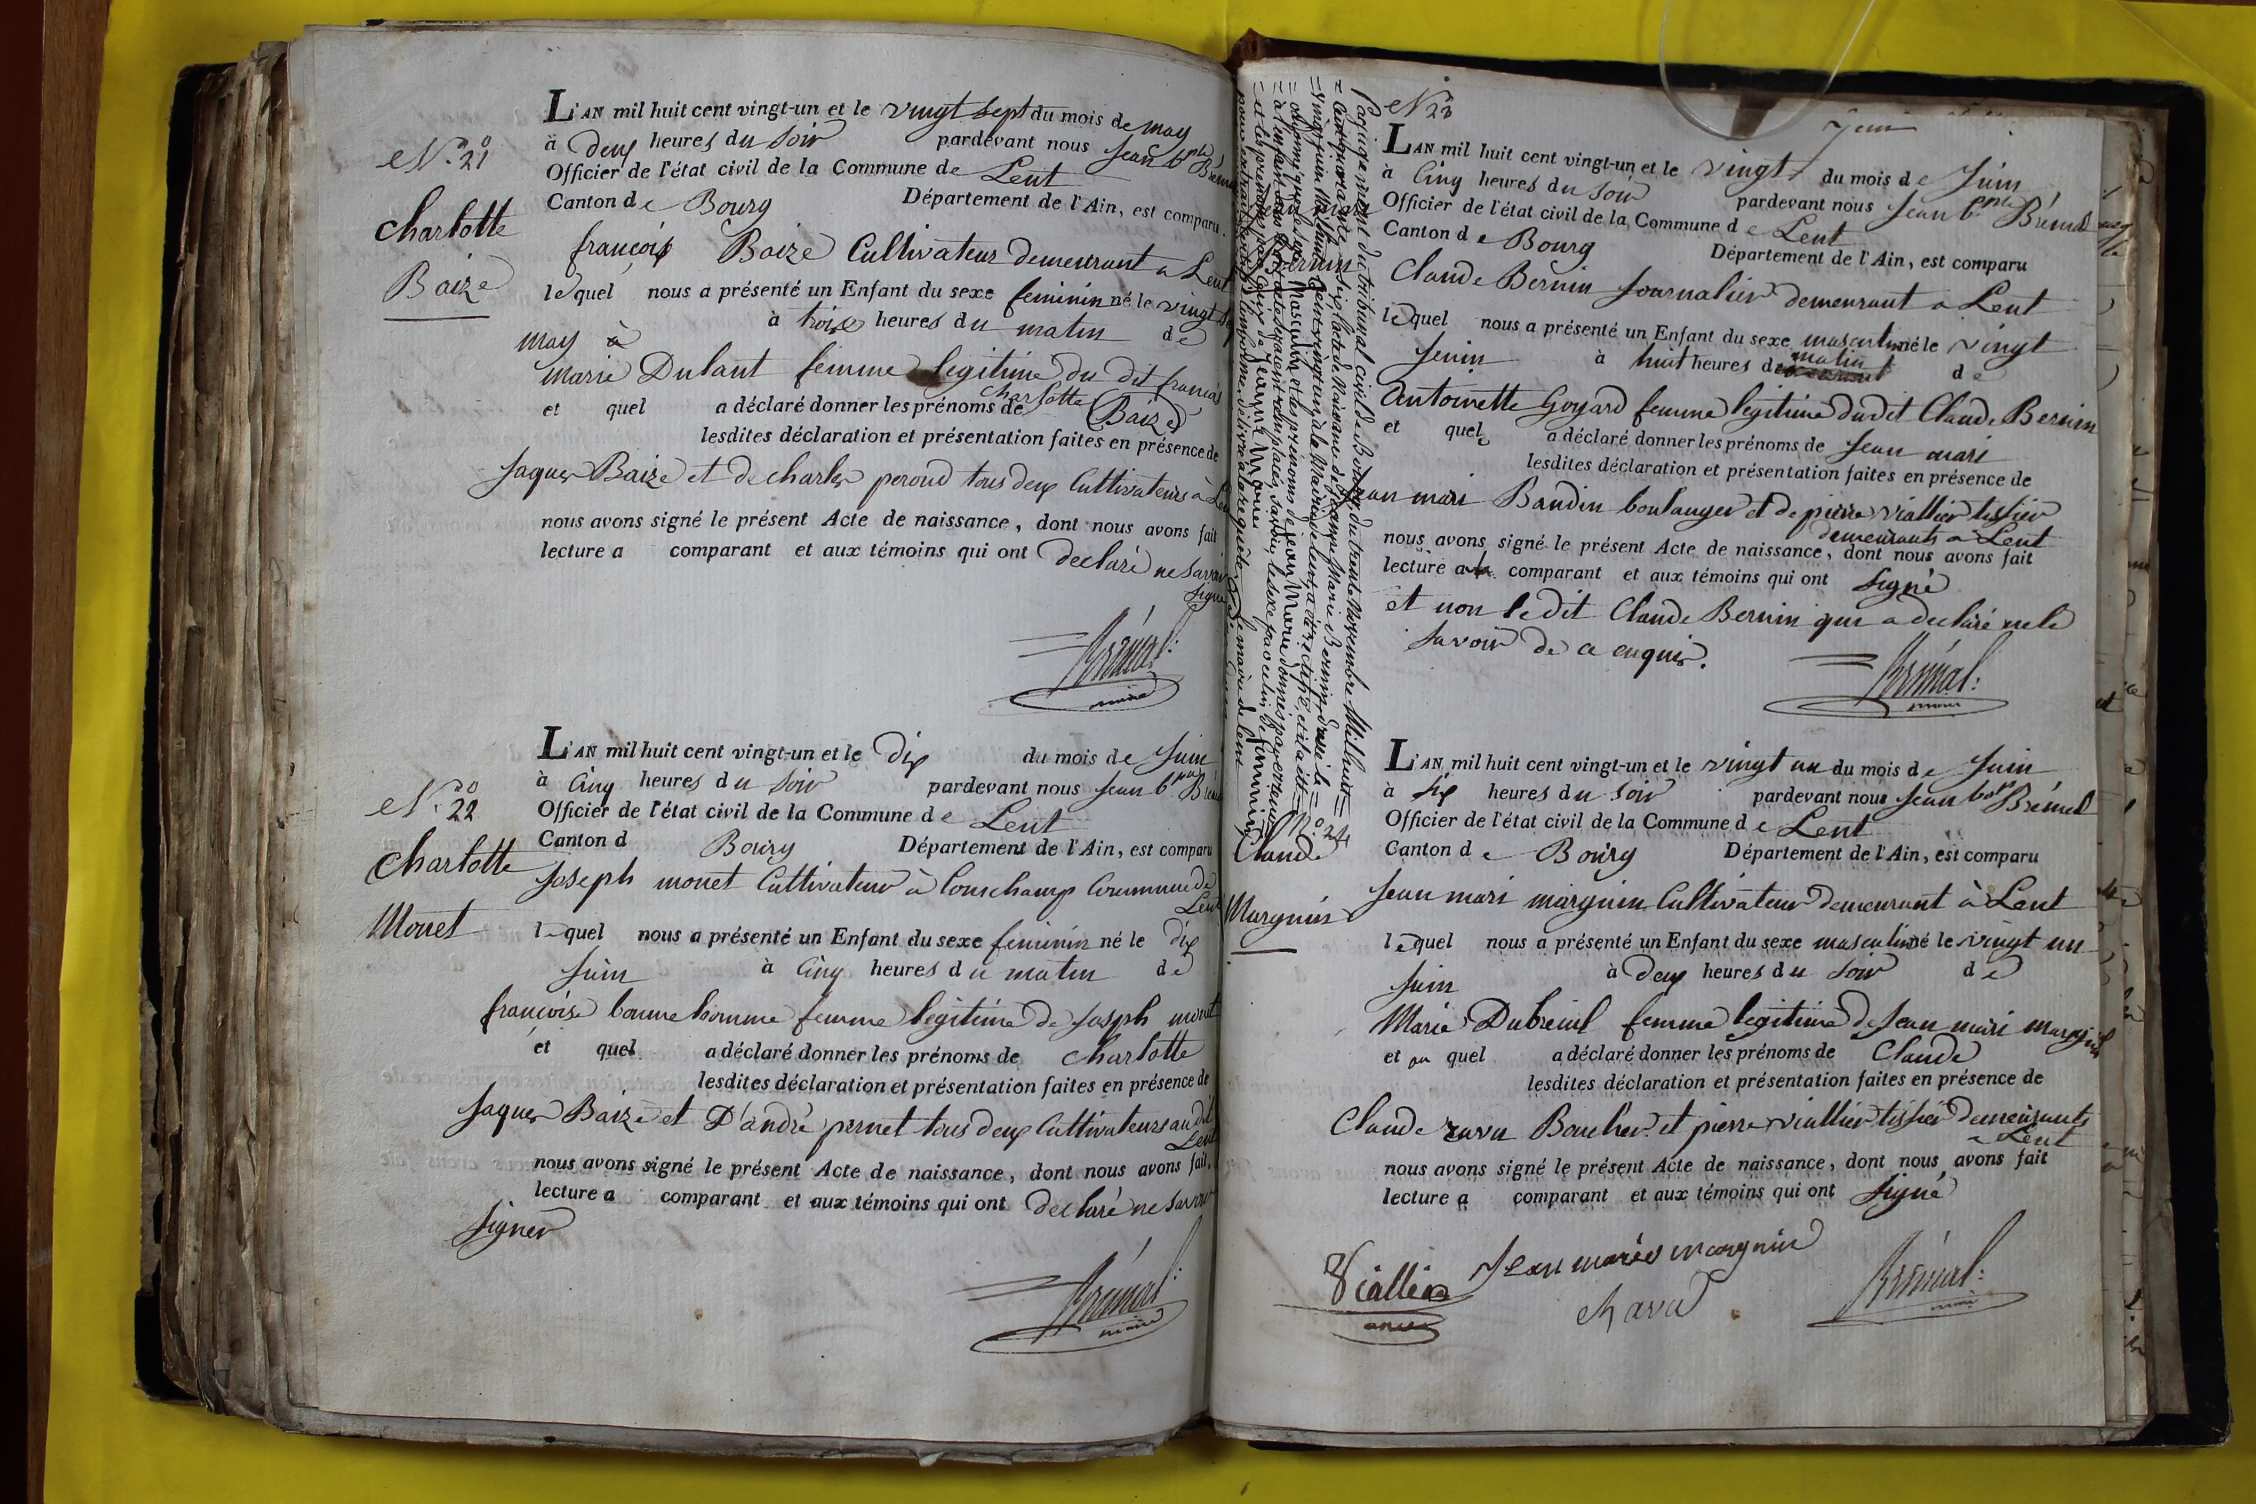 N.° 21
charlotte
Baize
L'AN mil huit cent vingt-un et le vingt sept du mois de may
à deux heures du soir pardevant nous jean bte Brémal
Officier de l'état civil de la Commune de Lent
Canton de Bourg Département de l'Ain, est comparu
françois Baize Cultivateur demeurant a Lent
lequel nous a présenté un Enfant du sexe feminin né le vingt sept
may à à trois heures du matin de
marie Dulant femme legitime du dit francois
et quel a déclaré donner les prénoms de Charlotte (Baize)
lesdites déclaration et présentation faites en présence de
jaques Baize et de charles peroud tous deux Cultivateurs à Lent
nous avons signé le présent Acte de naissance, dont nous avons fait
lecture a comparant et aux témoins qui ont declaré ne savoir
signer
Brémal:
maire
N.° 22
charlotte
Monet
L'AN mil huit cent vingt-un et le dix du mois de juin
à Cinq heures du soir pardevant nous jean bte Brémal
Officier de l'état civil de la Commune de Lent
Canton d Bourg Département de l'Ain, est comparu
joseph monet Cultivateur à Conschamp Commune de
Lent
lequel nous a présenté un Enfant du sexe feminin né le dix
juin à Cinq heures du matin de
françoise bonne homme femme legitime de joseph monet
et quel a déclaré donner les prénoms de charlotte
lesdites déclaration et présentation faites en présence de
jaques Baize et D'andré pernet tous deux Cultivateurs au dit
Lent
nous avons signé le présent Acte de naissance, dont nous avons fait
lecture a comparant et aux témoins qui ont declaré ne savoir
signer
Brémal:
maire
N° 23
juin
L'AN mil huit cent vingt-un et le vingt du mois de juin
à Cinq heures du soir pardevant nous jean bte Brémal
Officier de l'état civil de la Commune de Lent
Canton de Bourg Département de l'Ain, est comparu
Claude Bernin journalier demeurant a Lent
lequel nous a présenté un Enfant du sexe masculin né le vingt
juin à huit heures du matin de
antoinette Goyard femme legitime dudit Claude Bernin
et quel a déclaré donner les prénoms de jean mari
lesdites déclaration et présentation faites en présence de
jean mari Baudin boulanger et de pierre viallier tissier
demeurants a Lent
nous avons signé le présent Acte de naissance, dont nous avons fait
lecture au comparant et aux témoins qui ont signé
et non le dit Claude Bernin qui a declaré ne le
savoir de ce enquis.
Brémal:
maire
Par jugement du tribunal civil de Bourg, du trente Novembre Mil huit
cent quarante six, l'acte de Naissance de Jeanne Marie Bernin, du
vingt juin Mil huit cent vingt un, de la Mairie de Lent, a été rectifié, et il a été
Masculin et les prénoms de Jean Marie donnés par erreur
à l'enfant dans cet acte soyent remplacés, savoir, le sexe par celui de féminin
et les prénoms par ceux de Jeanne Marie
N° 24
Claude
Marguin
L'AN mil huit cent vingt-un et le vingt un du mois de juin
à six heures du soir pardevant nous jean bte Brémal
Officier de l'état civil de la Commune de Lent
Canton de Bourg Département de l'Ain, est comparu
jean mari marguin Cultivateur demeurant à Lent
lequel nous a présenté un Enfant du sexe masculin né le vingt un
juin à deux heures du soir de
Marie Dubreuil femme legitime de jean mari marguin
et au quel a déclaré donner les prénoms de Claude
lesdites déclaration et présentation faites en présence de
Claude ravu Boucher et pierre viallier tissier demeurants
a Lent
nous avons signé le présent Acte de naissance, dont nous avons fait
lecture a comparant et aux témoins qui ont signé
Viallier jean marie marguin
Brémal:
maire